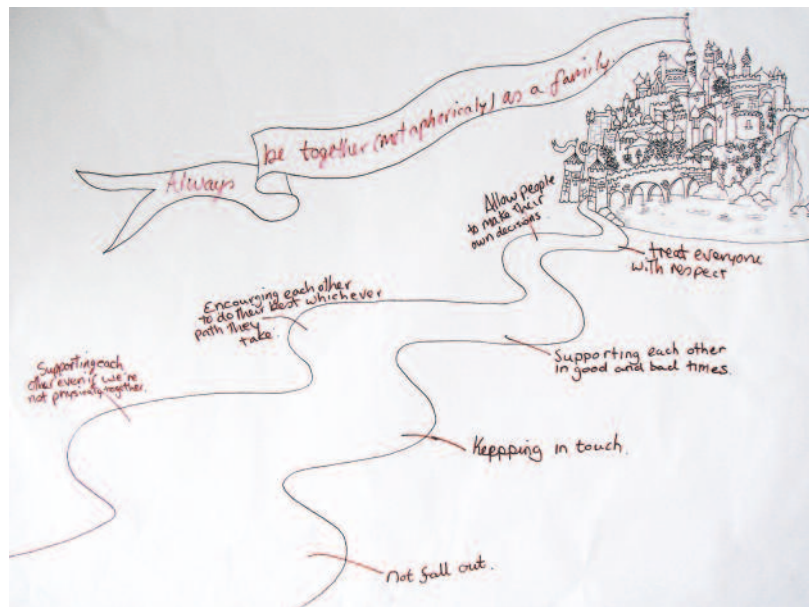 Always be together (metaphericaly) as a family.
Allow people
to make their
own decisions
treat everyone
with respect
Encourging each other
to do their best whichever
path they
take.
Supporting each other
in good and bad times.
Supporting each
other even if we're
not physicaly together.
Keppping in touch.
Not fall out.